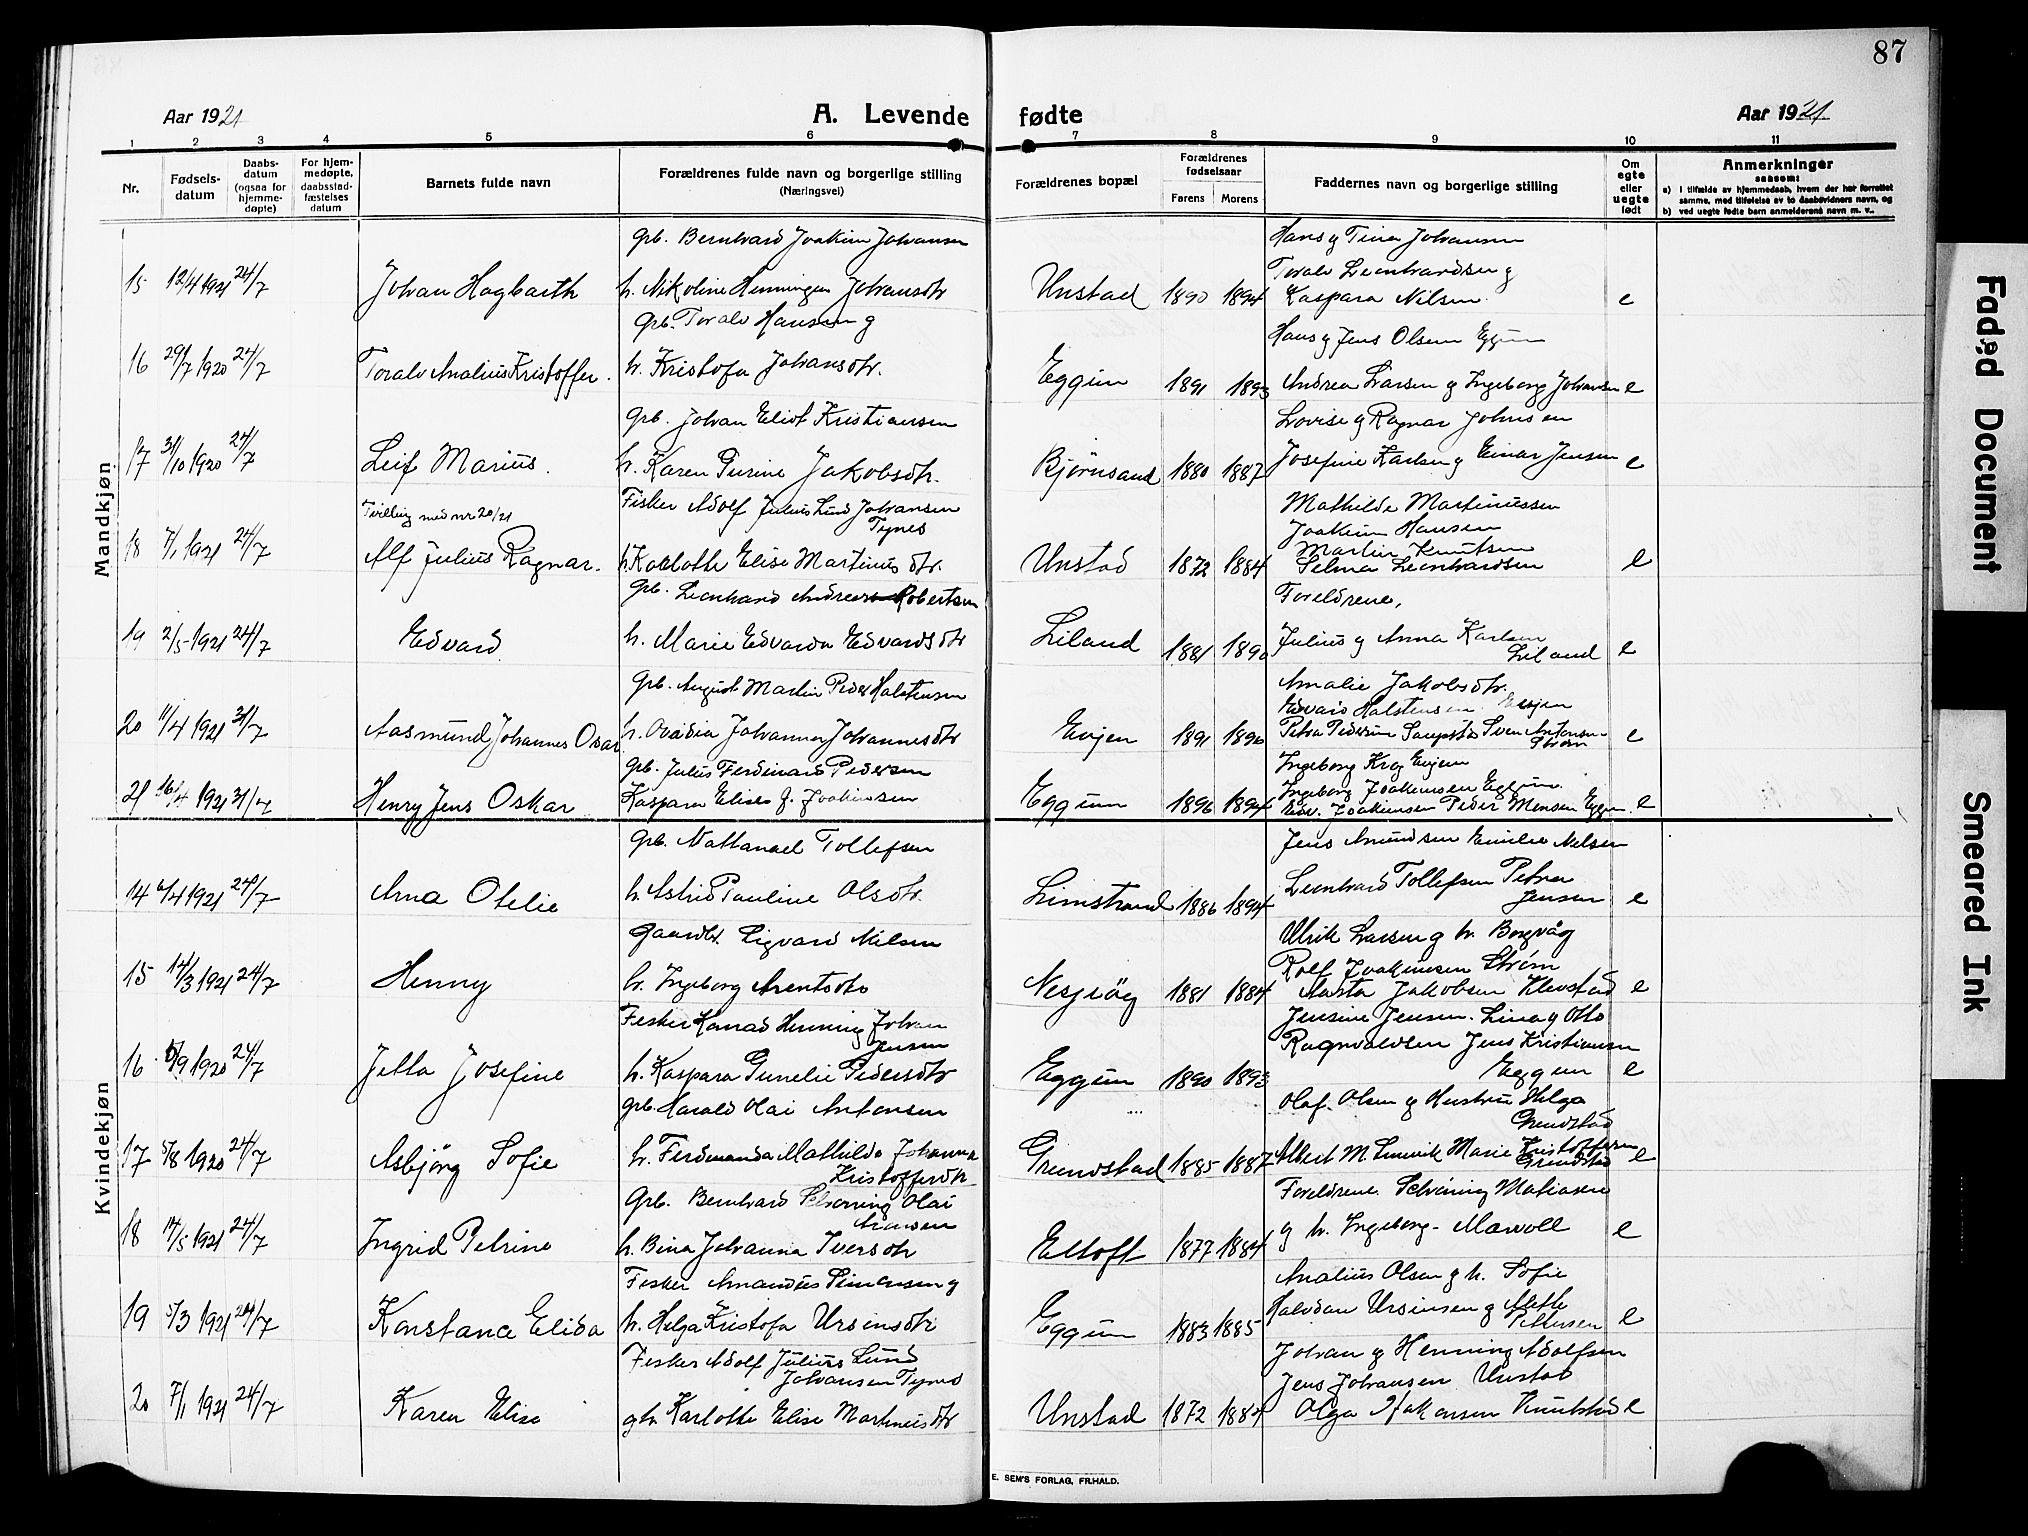 87
Aar 1921
A. Levende fødte
Aar 1921
1 2 3 4 5 6 7 8 9 10 11
Nr.
Fødselsdatum
Daabsdatum (ogsaa for hjemmedøpte)
For hjemmedøpte, daabsstadfæstelses datum
Barnets fulde navn
Forældrenes fulde navn og borgerlige stilling
(Næringsvei)
Forældrenes bopæl
Forældrenes fødselsaar
Førens Morens
Faddernes navn og borgerlige stilling
Om egte eller uegte født
Anmerkninger
saasom:
a) i tilfælde av hjemmedaab, hvem der har forrettet samme, med tilføielse av to daabsvidners navn, og
b) ved uegte fødte barn anmelderens navn m. v..
Mandkjøn
Grb. Bernhard Joakim Johansen Hans g Tina Johansen
Toralv Leonhardsen g
15 12/4 1921 24/7 Johan Hagbarth h. Nikoline Henningea Johansdtr Unstad 1890 1894 Kaspara Nilsen e
Grb. Toralv Hansen g Hans g Jens Olsen Eggum
16 29/7 1920 24/7 Toralv Analius Kristoffer. h. Kristofa Johansdtr. Eggum 1891 1893 Andrea Larsen g Ingeborg Johansen e
Grb. Johan Eliot Kristiansen Lovise g Ragnar Johnsen
17 31/10 1920 24/7 Leif Marius. h. Karen Gurine Jakobsdtr. Bjørnsand 1880 1887 Josefine Karlsen g Einar Jensen e
Tvilling med nr 20/21 Fisker Adolf Julius Lund Johansen Tynes Mathilde Martinussen
Joakim Hansen
Martin Knutsen
18 7/1 1921 24/7 Alf Julius Ragnar. h. Karlotte Elise Martinusdtr. Unstad 1872 1884 Selma Leonhardsen e
Grb. Leonhard Andreas Robertsen Foreldrene,
19 2/5 1921 24/7 Edvard h. Marie Edvarda Edvardsdtr Liland 1881 1890 Julius g Anna Karlsen Liland e
Grb. August Martin Peder Halstensen Amalie Jakobsdtr.
Edvard Halstensen Evjen
20 11/4 1921 31/7 Aasmund Johannes Osar h. Ovidia Johanna Johannesdtr Evjen 1891 1896 Petra Pedersen Sven Antonsen Strøm e
Grb. Julius Ferdinard Pedersen Ingeborg Krog Evjen
Ingeborg Joakimsen Eggum.
21 16/4 1921 31/7 Henry Jens Oskar Kaspara Elises f. Joakimsen Eggum 1896 1894 Edv. Joakimsen Peder Monsen Eggum. e
Kvindekjøn
Grb. Nathanael Tollefsen Jens Amundsen Emilie Nilsen
14 6/4 1921 24/7 Arna Otelie h. Astrid Pauline Olsdtr. Limstrand 1886 1894 Leonhard Tollefsen Petra Jensen e
Gaardbr. Sigvard Nilsen Ulrik Larsen g h. Borgvåg
Rolf Joakimsen Strøm
15 14/3 1921 24/7 Henny h. Ingeborg Arentsdtr Nesjvåg 1881 1884 Aasta Jakobsen Klevstad e
Fisker Konrad Henning Johan Jensen Jensine Jensen. Lina g Otto
Ragnvaldsen Jens Kristiansen
16 5/9 1920 24/7 Jetta Josefine h. Kaspara Gunelie Pedersdtr Eggum 1890 1893 Eggum e
Grb. Harald Olai Antonsen Olaf Olsen g Hustru Helga Grundstad
17 5/8 1920 24/7 Asbjörg Sofie h. Ferdinanda Mathilda Johanna Kristoffersdtr Grundstad 1885 1887 Albert M. Marie Kristoffersen Grundstad e
Grb. Bernhard Schorning Olai Hansen Foreldrene Schröning Matiasen
18 14/5 1921 24/7 Ingrid Petrine h. Bina Johanna Iversdtr Eltoft 1877 1884 g h. Ingeborg - Mærvoll e
Fisker Amandus Simonsen g Analius Olsen g h. Sofie
19 5/3 1921 24/7 Konstance Elida h. Helga Kristofa Ursinsdtr Eggum 1883 1885 Halvdan Ursinsen g Mette Pettersen e
Fisker Adolf Julius Lund Johansen Tynes Johan g Henning Adolfsen
Jens Johansen Unstad
20 7/1 1921 24/7 Karen Elise g h. Karlotte Elise Martinusdtr Unstad 1872 1884 Olga Hakonsen Knutstad e
E. SEM'S FORLAG, FR.HALD.
Faded Document
Smeared Ink